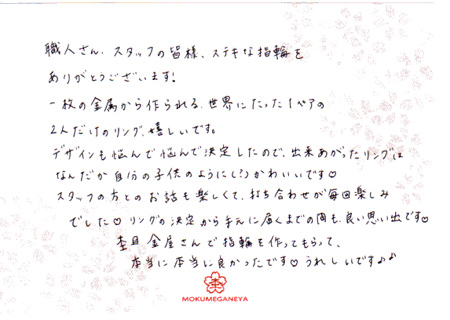 職人さん、スタッフの皆様、ステキな指輪を
ありがとうございます!
一枚の金属から作られる、世界にたった1ペアの
2人だけのリング、嬉しいです。
デザインも悩んで悩んで決定したので、出来あがったリングは
なんだか自分の子供のように(?)かわいいです♡
スタッフの方とのお話も楽しくて、打ち合わせが毎回楽しみ
でした♡ リングの決定から手元に届くまでの間も、良い思い出です♡
杢目金屋さんで指輪を作ってもらって、
本当に本当に良かったです♡ うれしいです♪♪
MOKUMEGANEYA